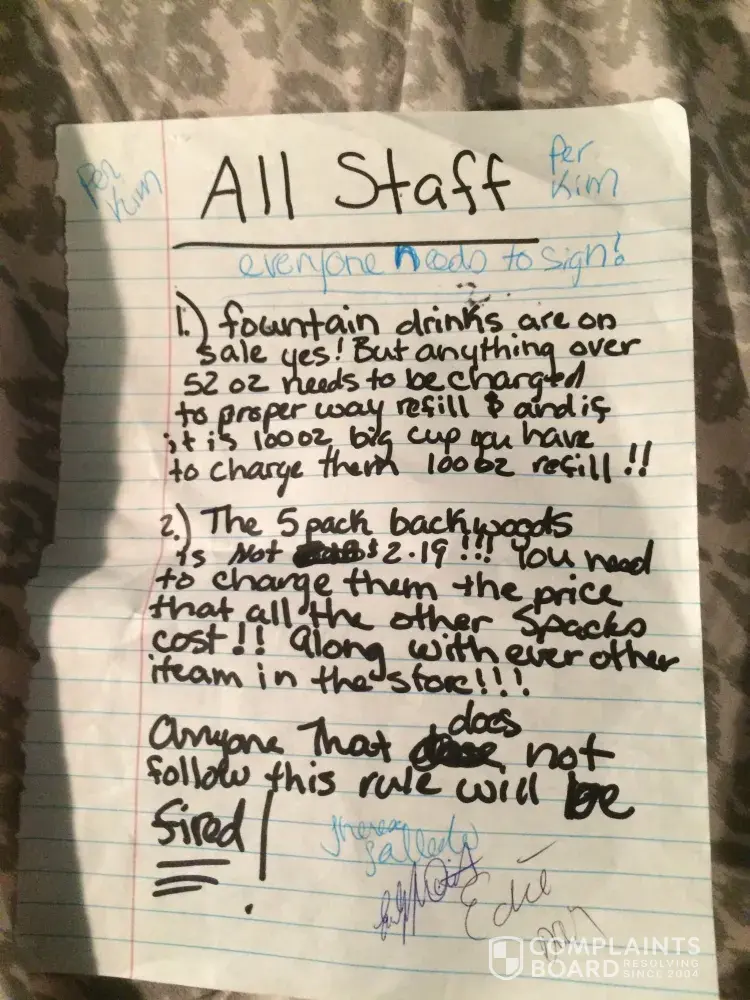 Per Kim
All Staff
Per Kim
everyone needs to sign!
1.) fountain drinks are on
sale yes! But anything over
52 oz needs to be charged
to proper way refill $ and if
it is 100oz big cup you have
to charge them 100oz refill !!
2.) The 5 pack backwoods
is Not $2.19 !!! You need
to charge them the price
that all the other 5packs
cost!! Along with ever other
iteam in the store!!!
Anyone That does not
follow this rule will be
fired!
Edie
COMPLAINTS
BOARD RESOLVING SINCE 2004